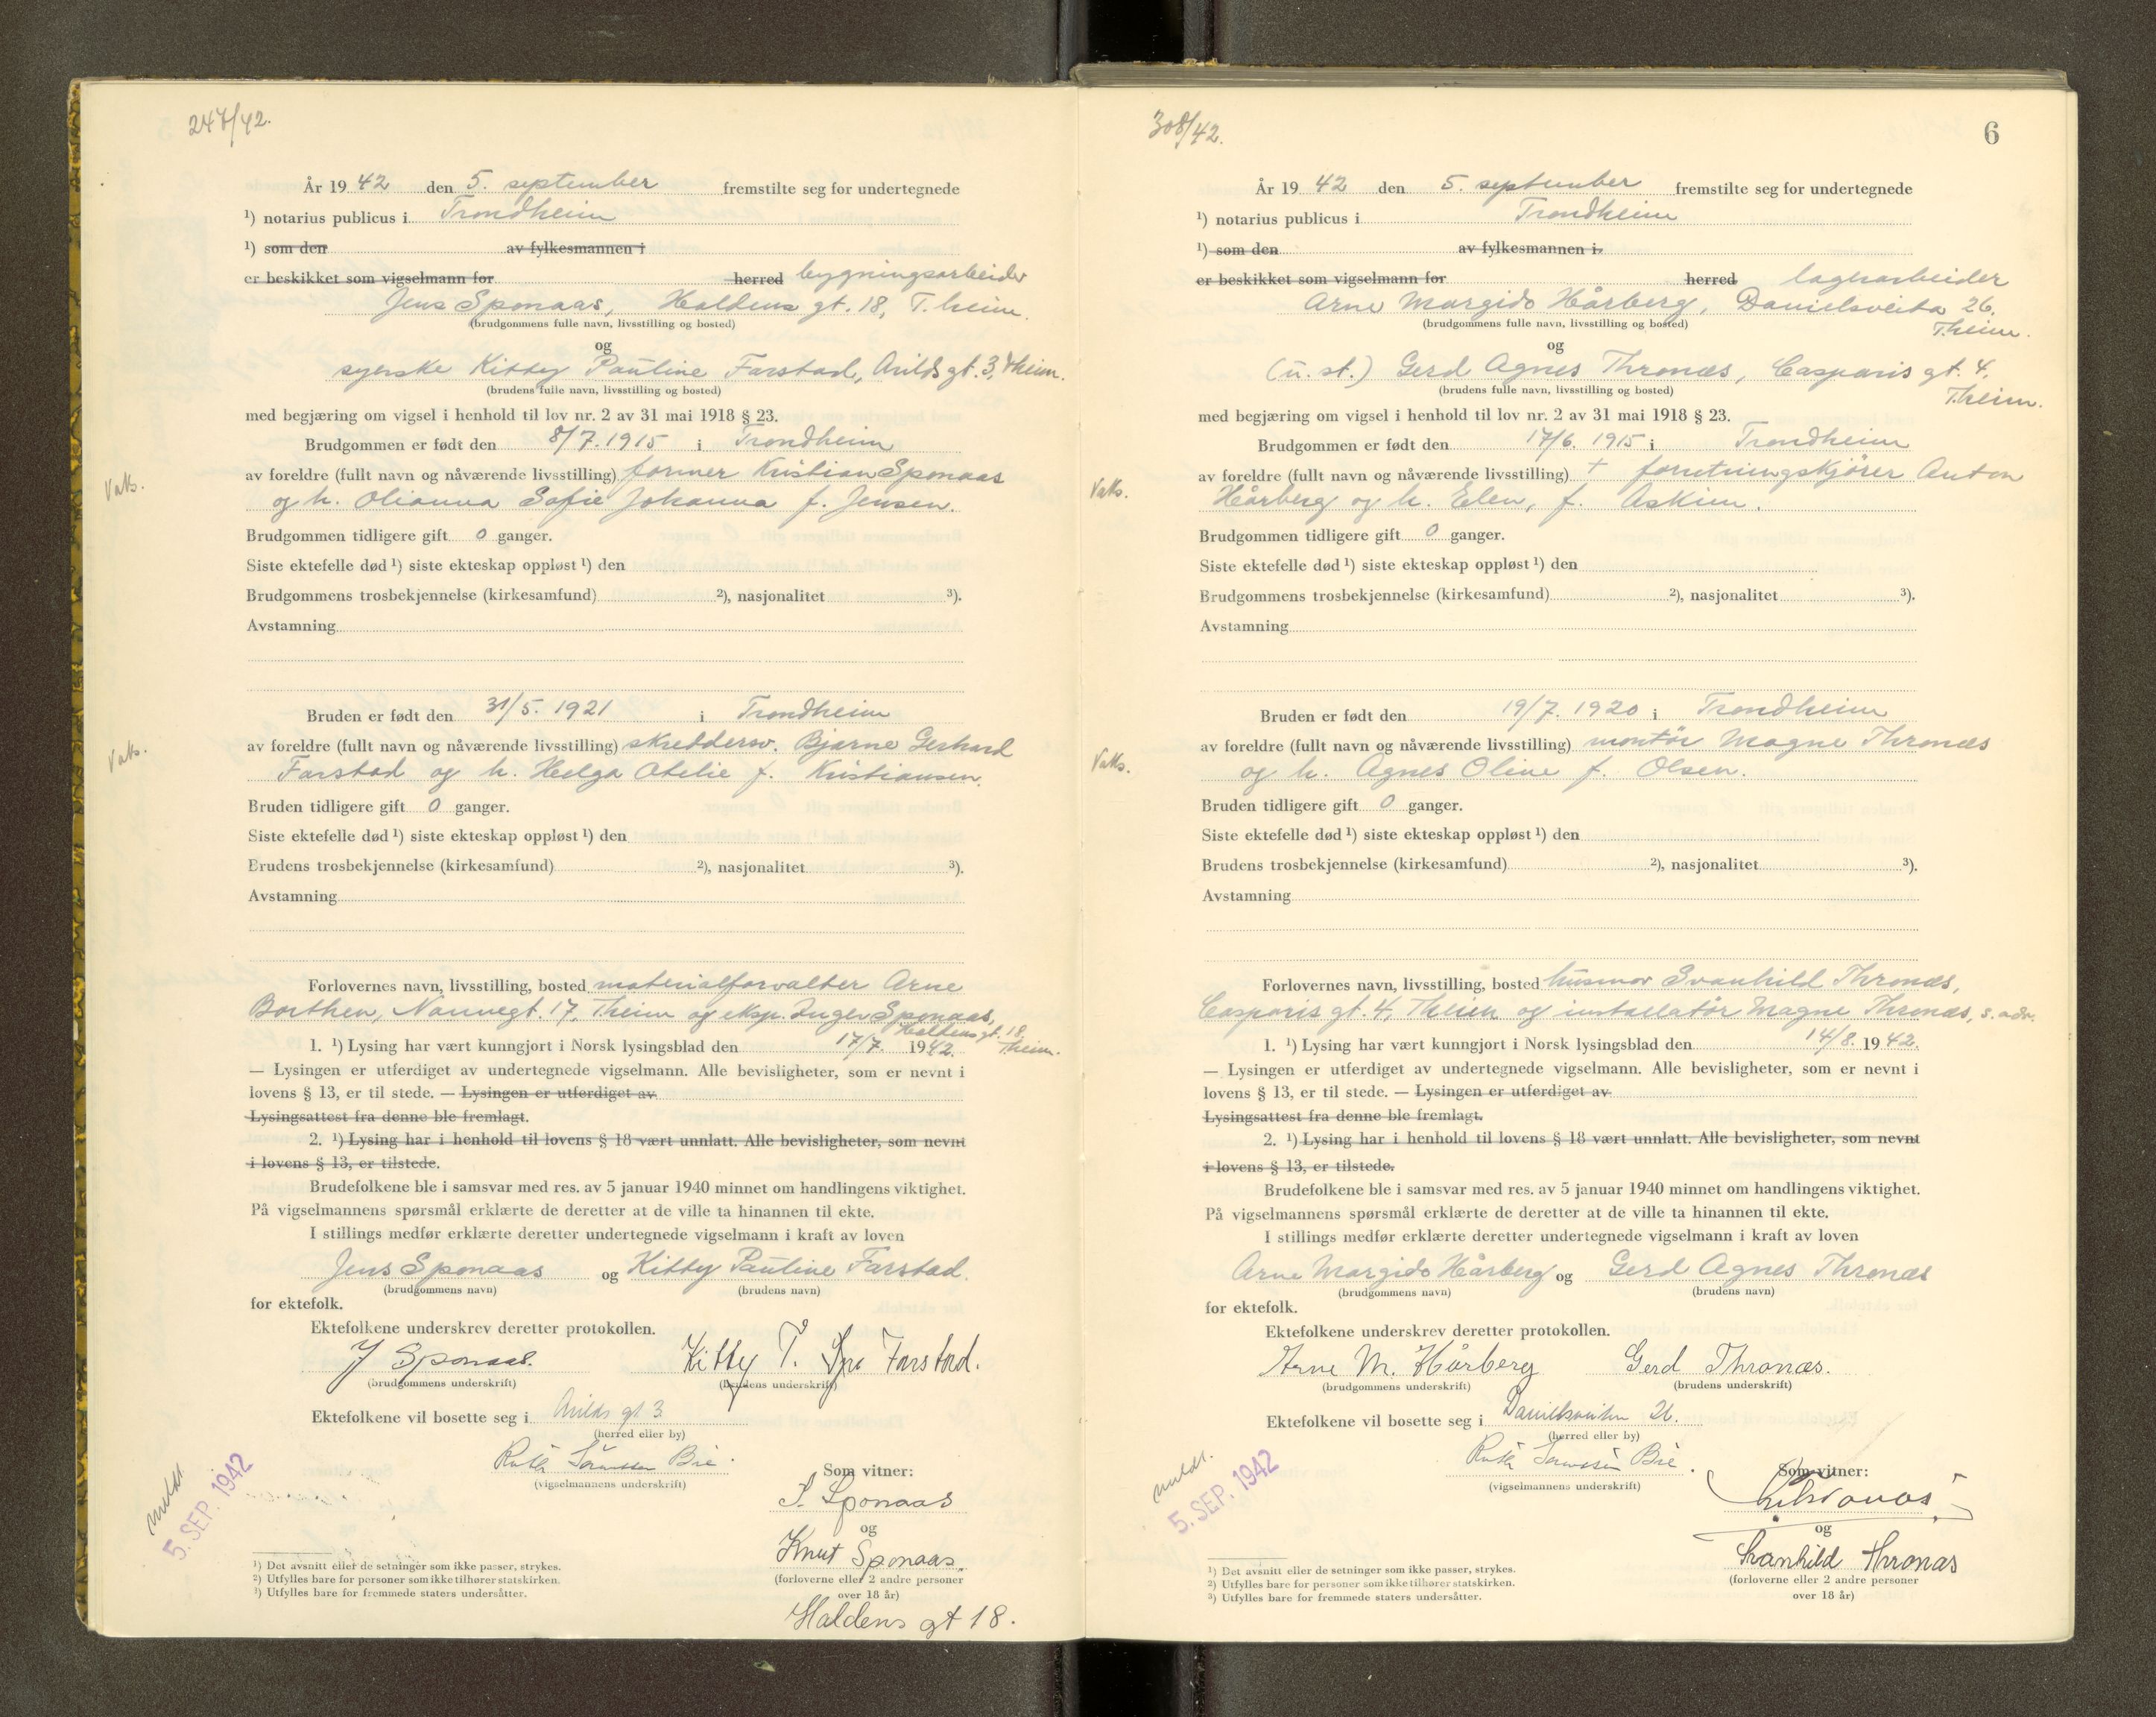 247/42.
År 19 42 den 5. september fremstilte seg for undertegnede
¹) notarius publicus i Trondheim
¹) som den av fylkesmannen i
er beskikket som vigselmann for herred bygningsarbeider
Jens Sponaas, Haldens gt. 18, T.heim.
(brudgommens fulle navn, livsstilling og bosted)
og
syerske Kitty Pauline Farstad, Arilds gt. 3, T.heim.
(brudens fulle navn, livsstilling og bosted)
med begjæring om vigsel i henhold til lov nr. 2 av 31 mai 1918 § 23.
Brudgommen er født den 8/7. 1915 i Trondheim
Vaks.
av foreldre (fullt navn og nåværende livsstilling) former Kristian Sponaas
og h. Olianna Sofie Johanna f. Jensen.
Brudgommen tidligere gift 0 ganger.
Siste ektefelle død ¹) siste ekteskap oppløst ¹) den
Brudgommens trosbekjennelse (kirkesamfund) ²), nasjonalitet ³).
Avstamning
Bruden er født den 31/5. 1921 i Trondheim
Vaks.
av foreldre (fullt navn og nåværende livsstilling) skreddersv. Bjarne Gerhard
Farstad og h. Helga Otelie f. Kristiansen.
Bruden tidligere gift 0 ganger.
Siste ektefelle død ¹) siste ekteskap oppløst ¹) den
Brudens trosbekjennelse (kirkesamfund) ²), nasjonalitet ³).
Avstamning
Forlovernes navn, livsstilling, bosted materialforvalter Arne
Borthen, Nannegt. 17, T.heim og eksp. Inger Sponaas,
Haldens gt. 18
T.heim.
1. ¹) Lysing har vært kunngjort i Norsk lysingsblad den 17/7. 1942.
— Lysingen er utferdiget av undertegnede vigselmann. Alle bevisligheter, som er nevnt i
lovens § 13, er til stede. — Lysingen er utferdiget av
Lysingsattest fra denne ble fremlagt.
2. ¹) Lysing har i henhold til lovens § 18 vært unnlatt. Alle bevisligheter, som nevnt
i lovens § 13, er tilstede.
Brudefolkene ble i samsvar med res. av 5 januar 1940 minnet om handlingens viktighet.
På vigselmannens spørsmål erklærte de deretter at de ville ta hinannen til ekte.
I stillings medfør erklærte deretter undertegnede vigselmann i kraft av loven
Jens Sponaas og Kitty Pauline Farstad.
(brudgommens navn) (brudens navn)
for ektefolk.
Ektefolkene underskrev deretter protokollen.
J Sponaas. Kitty P. Farstad.
(brudgommens underskrift) (brudens underskrift)
Ektefolkene vil bosette seg i Arilds gt 3
(herred eller by)
Ruth Bie.
(vigselmannens underskrift)
Som vitner:
I. Sponaas
og
Knut Sponaas
(forloverne eller 2 andre personer
over 18 år)
Haldens gt 18.
meldt.
5. SEP. 1942
¹) Det avsnitt eller de setninger som ikke passer, strykes.
²) Utfylles bare for personer som ikke tilhører statskirken.
³) Utfylles bare for fremmede staters undersåtter.
308/42.
6
År 19 42 den 5. september fremstilte seg for undertegnede
¹) notarius publicus i Trondheim
¹) som den av fylkesmannen i
er beskikket som vigselmann for herred lagerarbeider
Arne Margido Hårberg, Danielsveita 26.
T.heim.
(brudgommens fulle navn, livsstilling og bosted)
og
(u. st.) Gerd Agnes Thronæs, Casparis gt. 4.
T.heim.
(brudens fulle navn, livsstilling og bosted)
med begjæring om vigsel i henhold til lov nr. 2 av 31 mai 1918 § 23.
Brudgommen er født den 17/6. 1915 i Trondheim
Vaks.
av foreldre (fullt navn og nåværende livsstilling) + forretningskjører Anton
Hårberg og h. Elen, f. Askim.
Brudgommen tidligere gift 0 ganger.
Siste ektefelle død ¹) siste ekteskap oppløst ¹) den
Brudgommens trosbekjennelse (kirkesamfund) ²), nasjonalitet ³).
Avstamning
Bruden er født den 19/7. 1920 i Trondheim
Vaks.
av foreldre (fullt navn og nåværende livsstilling) montør Magne Thronæs
og h. Agnes Oline f. Olsen.
Bruden tidligere gift 0 ganger.
Siste ektefelle død ¹) siste ekteskap oppløst ¹) den
Brudens trosbekjennelse (kirkesamfund) ²), nasjonalitet ³).
Avstamning
Forlovernes navn, livsstilling, bosted husmor Svanhild Thronæs,
Casparis gt. 4, T.heim og installatør Magne Thronæs, s. adr.
1. ¹) Lysing har vært kunngjort i Norsk lysingsblad den 14/8. 1942.
— Lysingen er utferdiget av undertegnede vigselmann. Alle bevisligheter, som er nevnt i
lovens § 13, er til stede. — Lysingen er utferdiget av
Lysingsattest fra denne ble fremlagt.
2. ¹) Lysing har i henhold til lovens § 18 vært unnlatt. Alle bevisligheter, som nevnt
i lovens § 13, er tilstede.
Brudefolkene ble i samsvar med res. av 5 januar 1940 minnet om handlingens viktighet.
På vigselmannens spørsmål erklærte de deretter at de ville ta hinannen til ekte.
I stillings medfør erklærte deretter undertegnede vigselmann i kraft av loven
Arne Margido Hårberg og Gerd Agnes Thronæs
(brudgommens navn) (brudens navn)
for ektefolk.
Ektefolkene underskrev deretter protokollen.
Arne M. Hårberg Gerd Thronæs.
(brudgommens underskrift) (brudens underskrift)
Ektefolkene vil bosette seg i Danielsveiten 26.
(herred eller by)
Ruth Bie.
(vigselmannens underskrift)
Som vitner:
og
Svanhild Thronæs
(forloverne eller 2 andre personer
over 18 år)
meldt.
5. SEP. 1942
¹) Det avsnitt eller de setninger som ikke passer, strykes.
²) Utfylles bare for personer som ikke tilhører statskirken.
³) Utfylles bare for fremmede staters undersåtter.